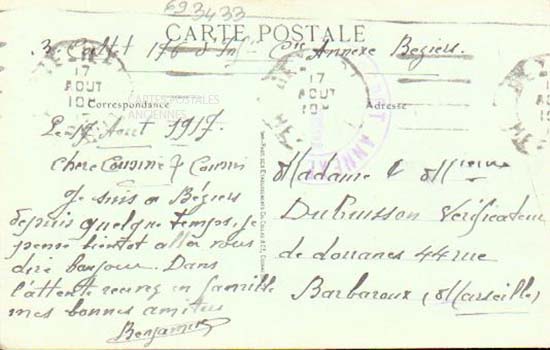 693433
CARTE POSTALE
3. Cattet 176 d'Inf. Cie Annexe Beziers.
17
AOUT
17
AOUT
CARTES POSTALES
ANCIENNES
Correspondance
Adresse
ANNEXE
Le 17 Aout 1917.
Chere Cousine & Cousin
Je suis a Béziers
depuis quelque temps, je
pense bientot aller vous
dire bonjour. Dans
l'attente recevez en famille
mes bonnes amities
Benjamin
Madame & Mr
Dubuisson Vérificateur
de douanes 44 rue
Barbaroux, (Marseille)